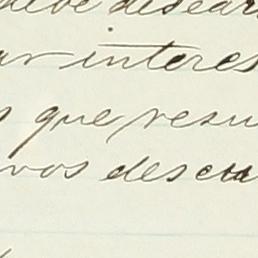 debe desear
ar interes
s que resu
vos descu